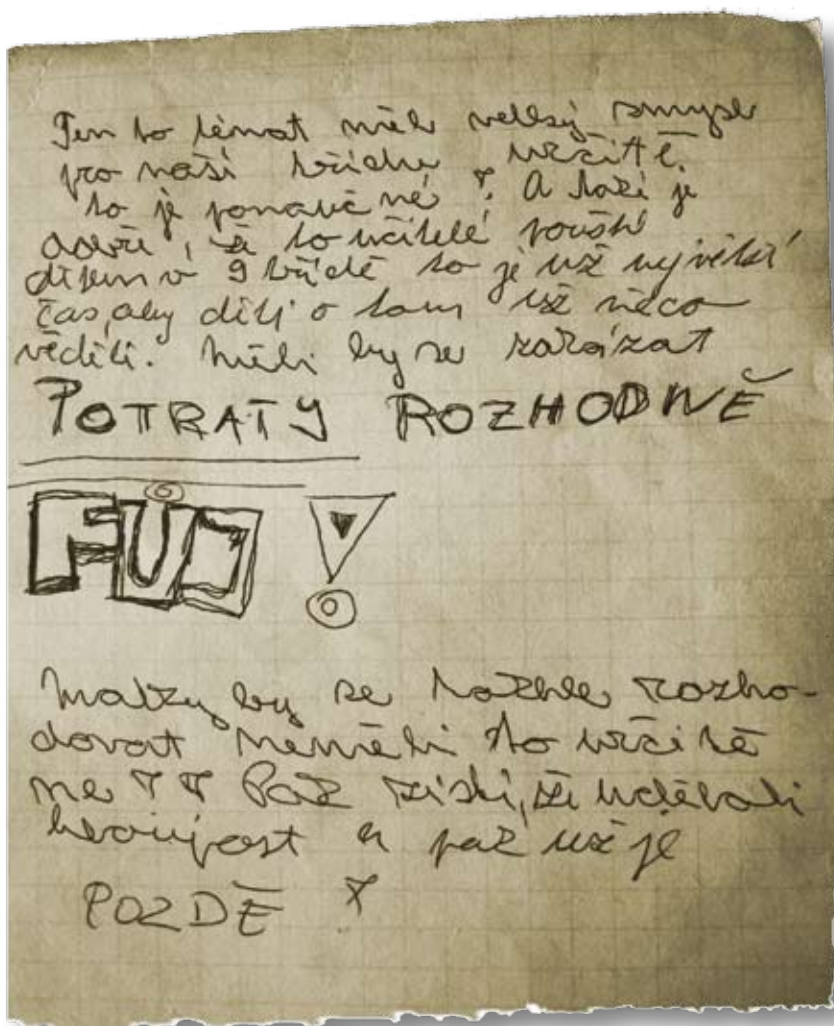 Ten to témat měl velký smysl
pro naši třídu, určitě.
to je ponaučné! A také je
dobře, že to učitelé pouští
dětem v 9 třídě to je už největší
čas, aby děti o tom už něco
věděli. Měli by se zakázat
POTRATY ROZHODNĚ
FŮJ!
Matky by se takhle rozho-
dovat neměli to určitě
ne!! Pak zjistí, že udělali
hloupost a pak už je
POZDĚ!